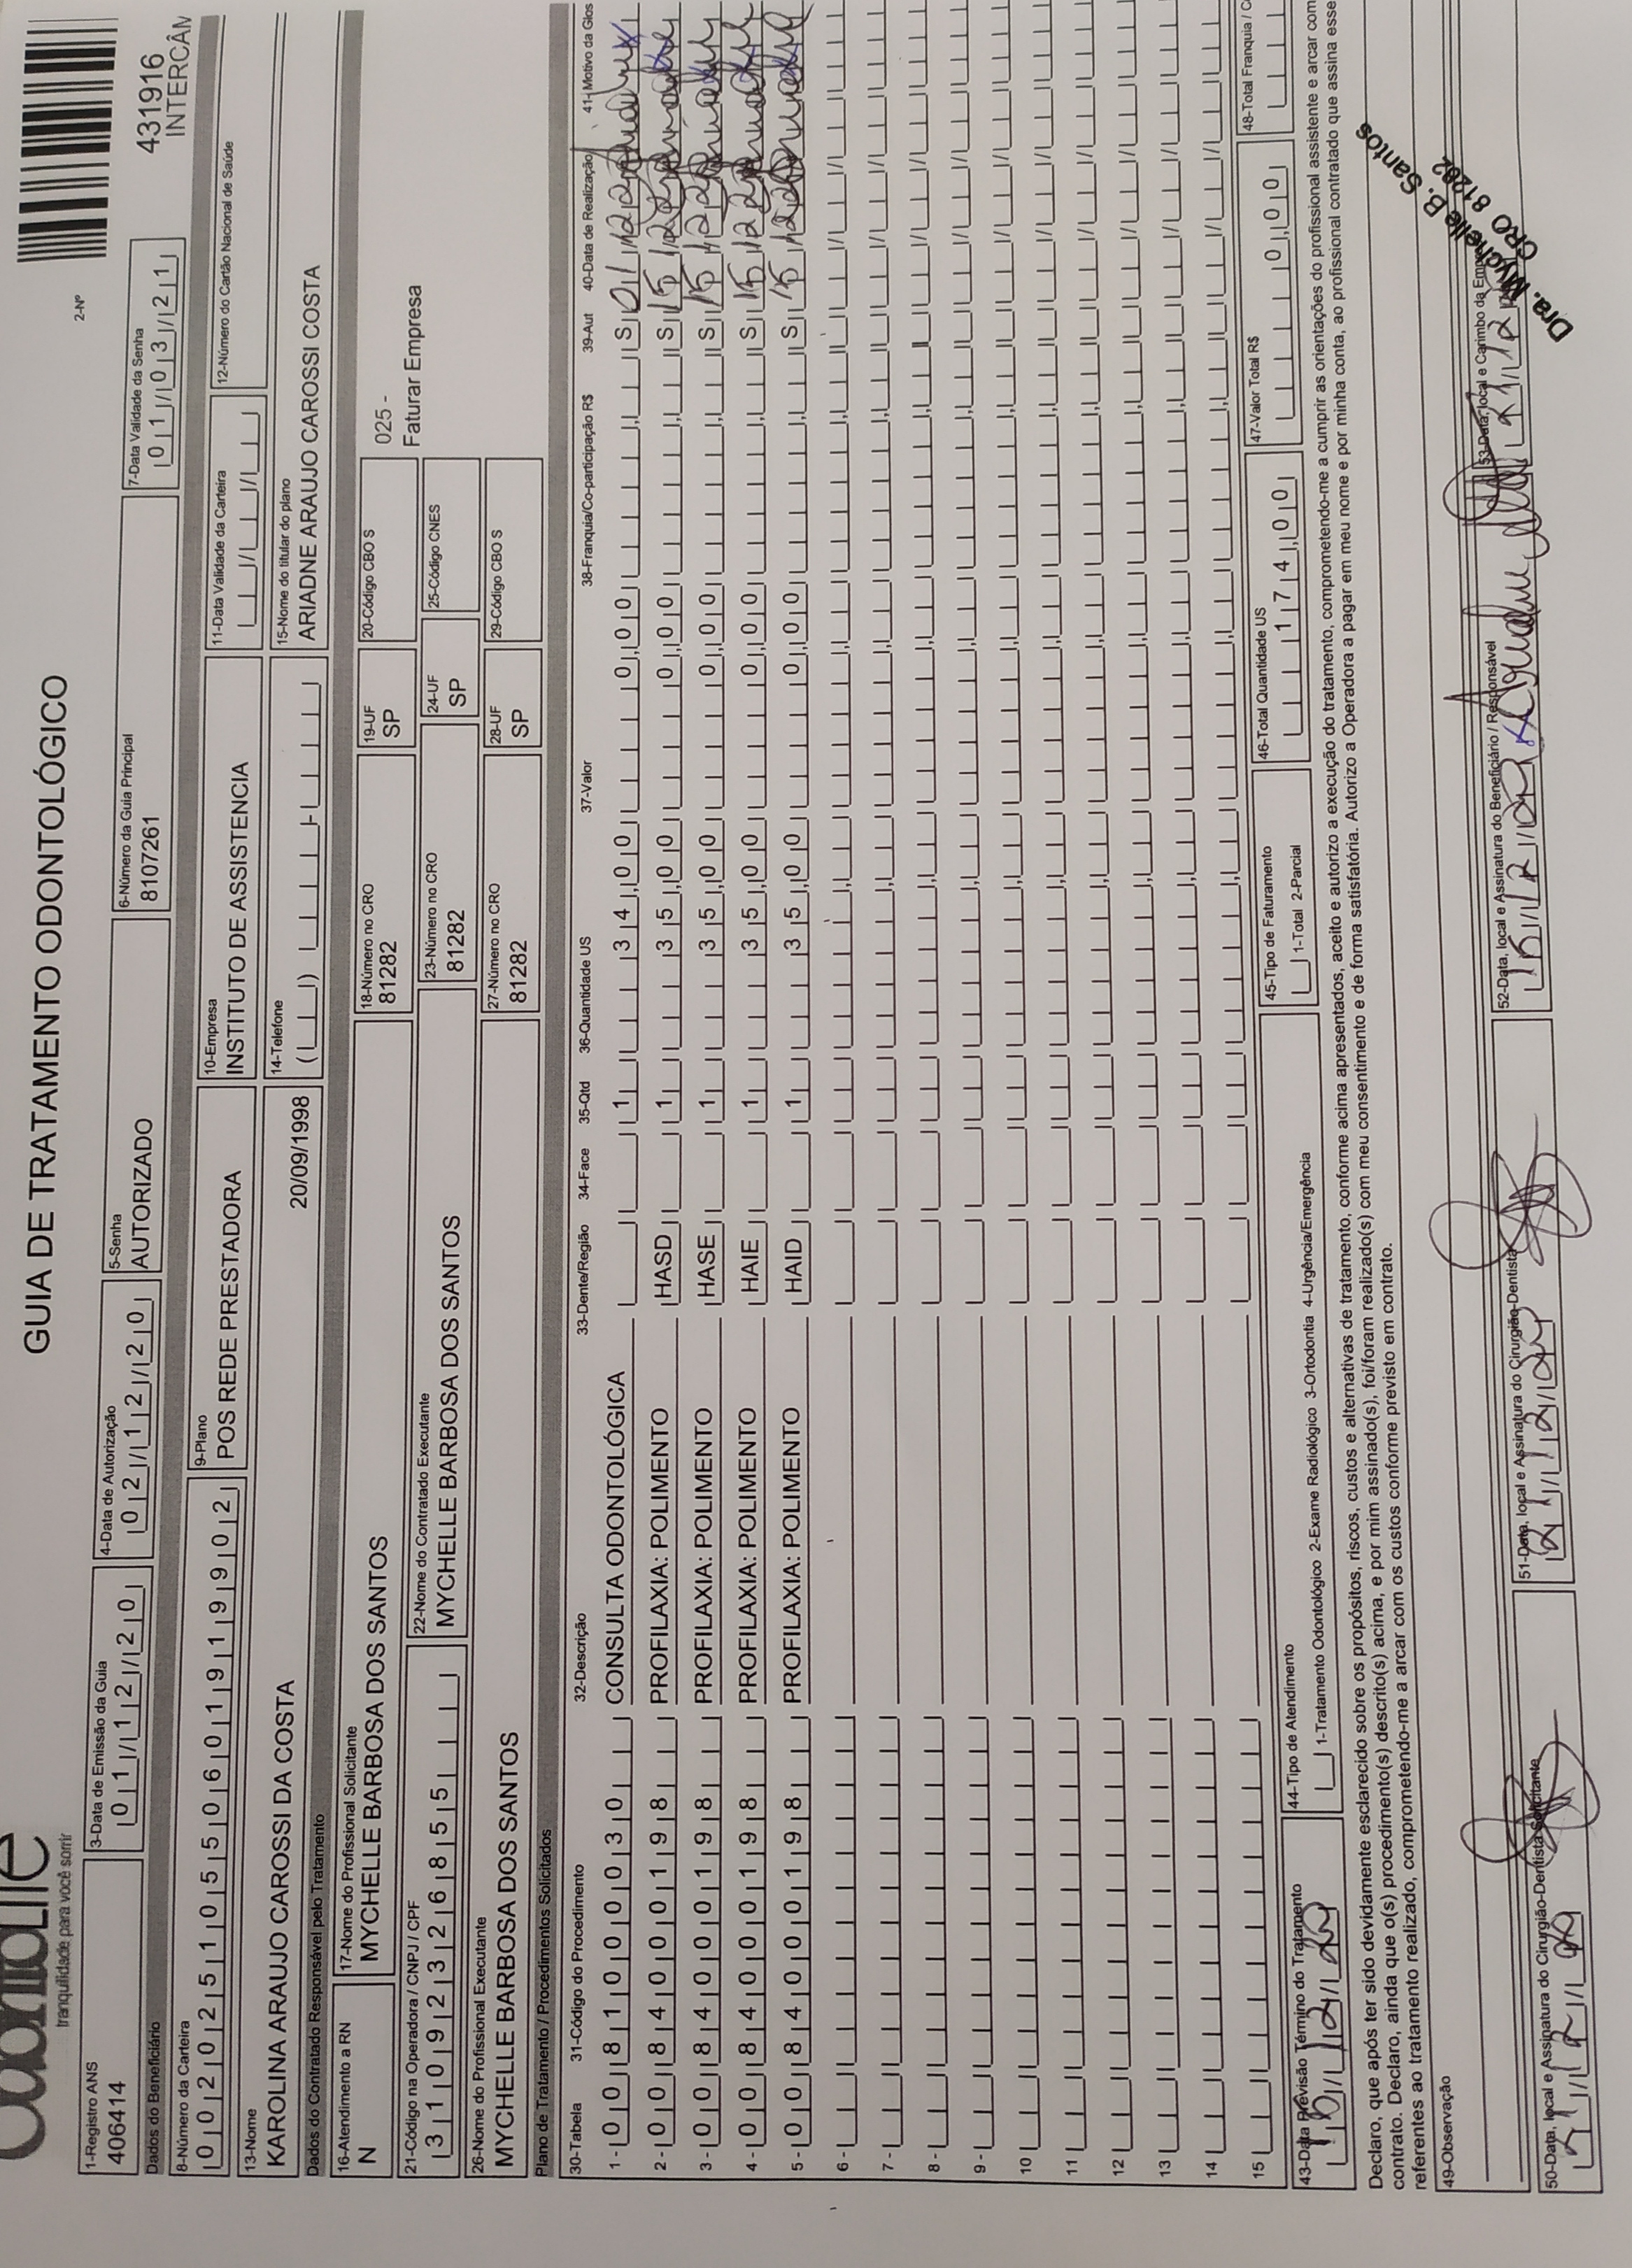 GUIA DE TRATAMENTO ODONTOLÓGICO
2-Nº
431916
INTERCÂM
tranquilidade para você sorrir
1-Registro ANS
406414
3-Data de Emissão da Guia
01/12/20
4-Data de Autorização
02/12/20
5-Senha
AUTORIZADO
6-Número da Guia Principal
8107261
7-Data Validade da Senha
01/03/21
Dados do Beneficiário
8-Número da Carteira
00202510550601919902
9-Plano
POS REDE PRESTADORA
10-Empresa
INSTITUTO DE ASSISTENCIA
11-Data Validade da Carteira
12-Número do Cartão Nacional de Saúde
13-Nome
KAROLINA ARAUJO CAROSSI DA COSTA
20/09/1998
14-Telefone
15-Nome do titular do plano
ARIADNE ARAUJO CAROSSI COSTA
Dados do Contratado Responsável pelo Tratamento
16-Atendimento a RN
N
17-Nome do Profissional Solicitante
MYCHELLE BARBOSA DOS SANTOS
18-Número no CRO
81282
19-UF
SP
20-Código CBO S
025 -
Faturar Empresa
21-Código na Operadora / CNPJ / CPF
31092326855
22-Nome do Contratado Executante
MYCHELLE BARBOSA DOS SANTOS
23-Número no CRO
81282
24-UF
SP
25-Código CNES
26-Nome do Profissional Executante
MYCHELLE BARBOSA DOS SANTOS
27-Número no CRO
81282
28-UF
SP
29-Código CBO S
Plano de Tratamento / Procedimentos Solicitados
30-Tabela 31-Código do Procedimento 32-Descrição 33-Dente/Região 34-Face 35-Qtd 36-Quantidade US 37-Valor 38-Franquia/Co-participação R$ 39-Aut 40-Data de Realização 41-Motivo da Glos
1 - 00 81000030 CONSULTA ODONTOLÓGICA 1 34,00 0,00 S 01/12/20
2 - 00 84000198 PROFILAXIA: POLIMENTO HASD 1 35,00 0,00 S 15/12/20
3 - 00 84000198 PROFILAXIA: POLIMENTO HASE 1 35,00 0,00 S 15/12/20
4 - 00 84000198 PROFILAXIA: POLIMENTO HAIE 1 35,00 0,00 S 15/12/20
5 - 00 84000198 PROFILAXIA: POLIMENTO HAID 1 35,00 0,00 S 15/12/20
6 -
7 -
8 -
9 -
10
11
12
13
14
15
43-Data Previsão Término do Tratamento
44-Tipo de Atendimento
1-Tratamento Odontológico 2-Exame Radiológico 3-Ortodontia 4-Urgência/Emergência
45-Tipo de Faturamento
1-Total 2-Parcial
46-Total Quantidade US
174,00
47-Valor Total R$
0,00
48-Total Franquia / C
Declaro, que após ter sido devidamente esclarecido sobre os propósitos, riscos, custos e alternativas de tratamento, conforme acima apresentados, aceito e autorizo a execução do tratamento, comprometendo-me a cumprir as orientações do profissional assistente e arcar com
contrato. Declaro, ainda que o(s) procedimento(s) descrito(s) acima, e por mim assinado(s), foi/foram realizado(s) com meu consentimento e de forma satisfatória. Autorizo a Operadora a pagar em meu nome e por minha conta, ao profissional contratado que assina esse
referentes ao tratamento realizado, comprometendo-me a arcar com os custos conforme previsto em contrato.
49-Observação
50-Data, local e Assinatura do Cirurgião-Dentista Solicitante
51-Data, local e Assinatura do Cirurgião-Dentista
52-Data, local e Assinatura do Beneficiário / Responsável
53-Data, local e Carimbo da Empresa
Dra. Mychelle B. Santos
CRO 81282